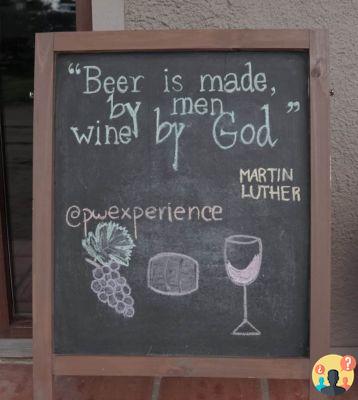 “Beer is made,
by men
wine by God”
MARTIN
LUTHER
@pwexperience
¿ ?